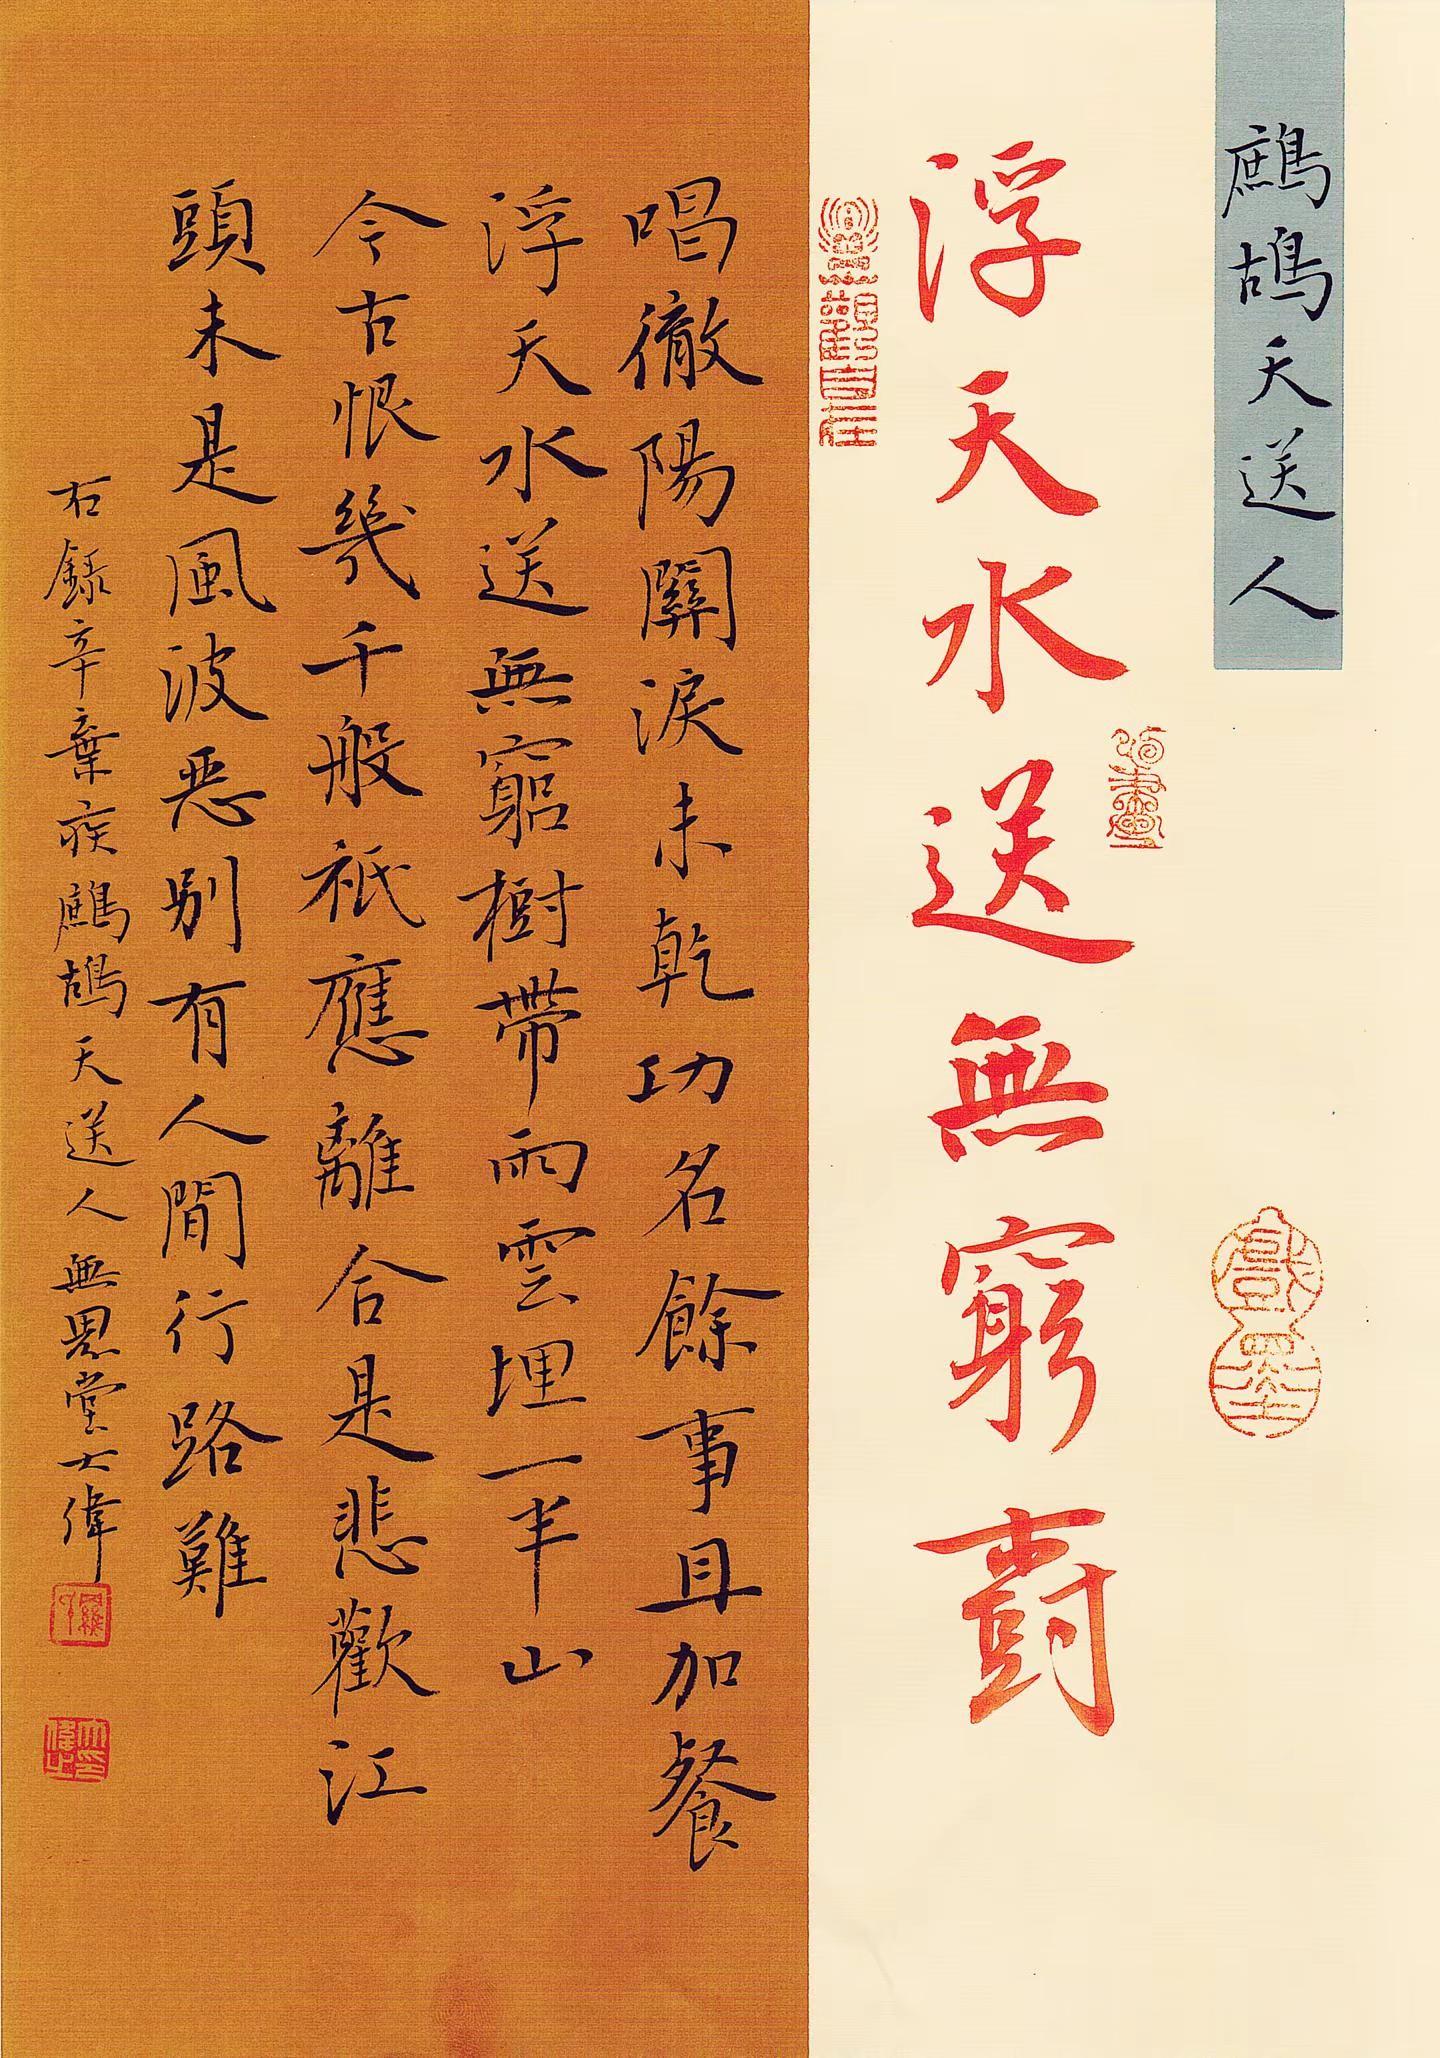 鷓鴣天送人
浮天水送無窮樹
唱徹陽關淚未乾功名餘事且加餐
浮天水送無窮樹帶雨雲埋一半山
今古恨幾千般祇應離合是悲歡江
頭未是風波惡別有人間行路難
右錄辛棄疾鷓鴣天送人無恩堂士偉
戲墨